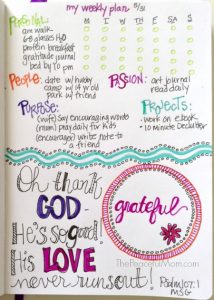 my weekly plan 5/31
PERSONAL: M T W TH F SA S
am walk
6-8 glasses H2O
protein breakfast
gratitude journal
bed by 10 pm
PEOPLE: date w/ hubby
camp w/ 14 yr old
park w/ friend
PASSION: art journal
read daily
PURPOSE:
(wife) Say encouraging words
(mom) pray daily for kids
(encourage) write note to
a friend
PROJECTS:
work on ebook
10 minute declutter
Oh thank
GOD-
He's so good!
His LOVE
never runs out!
grateful
ThePeacefulMom.com
Psalm 107:1
MSG